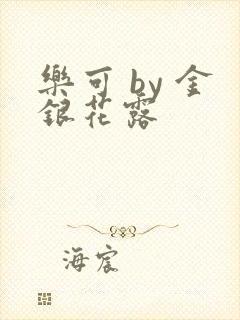 樂可 by 金
銀花露
海宸